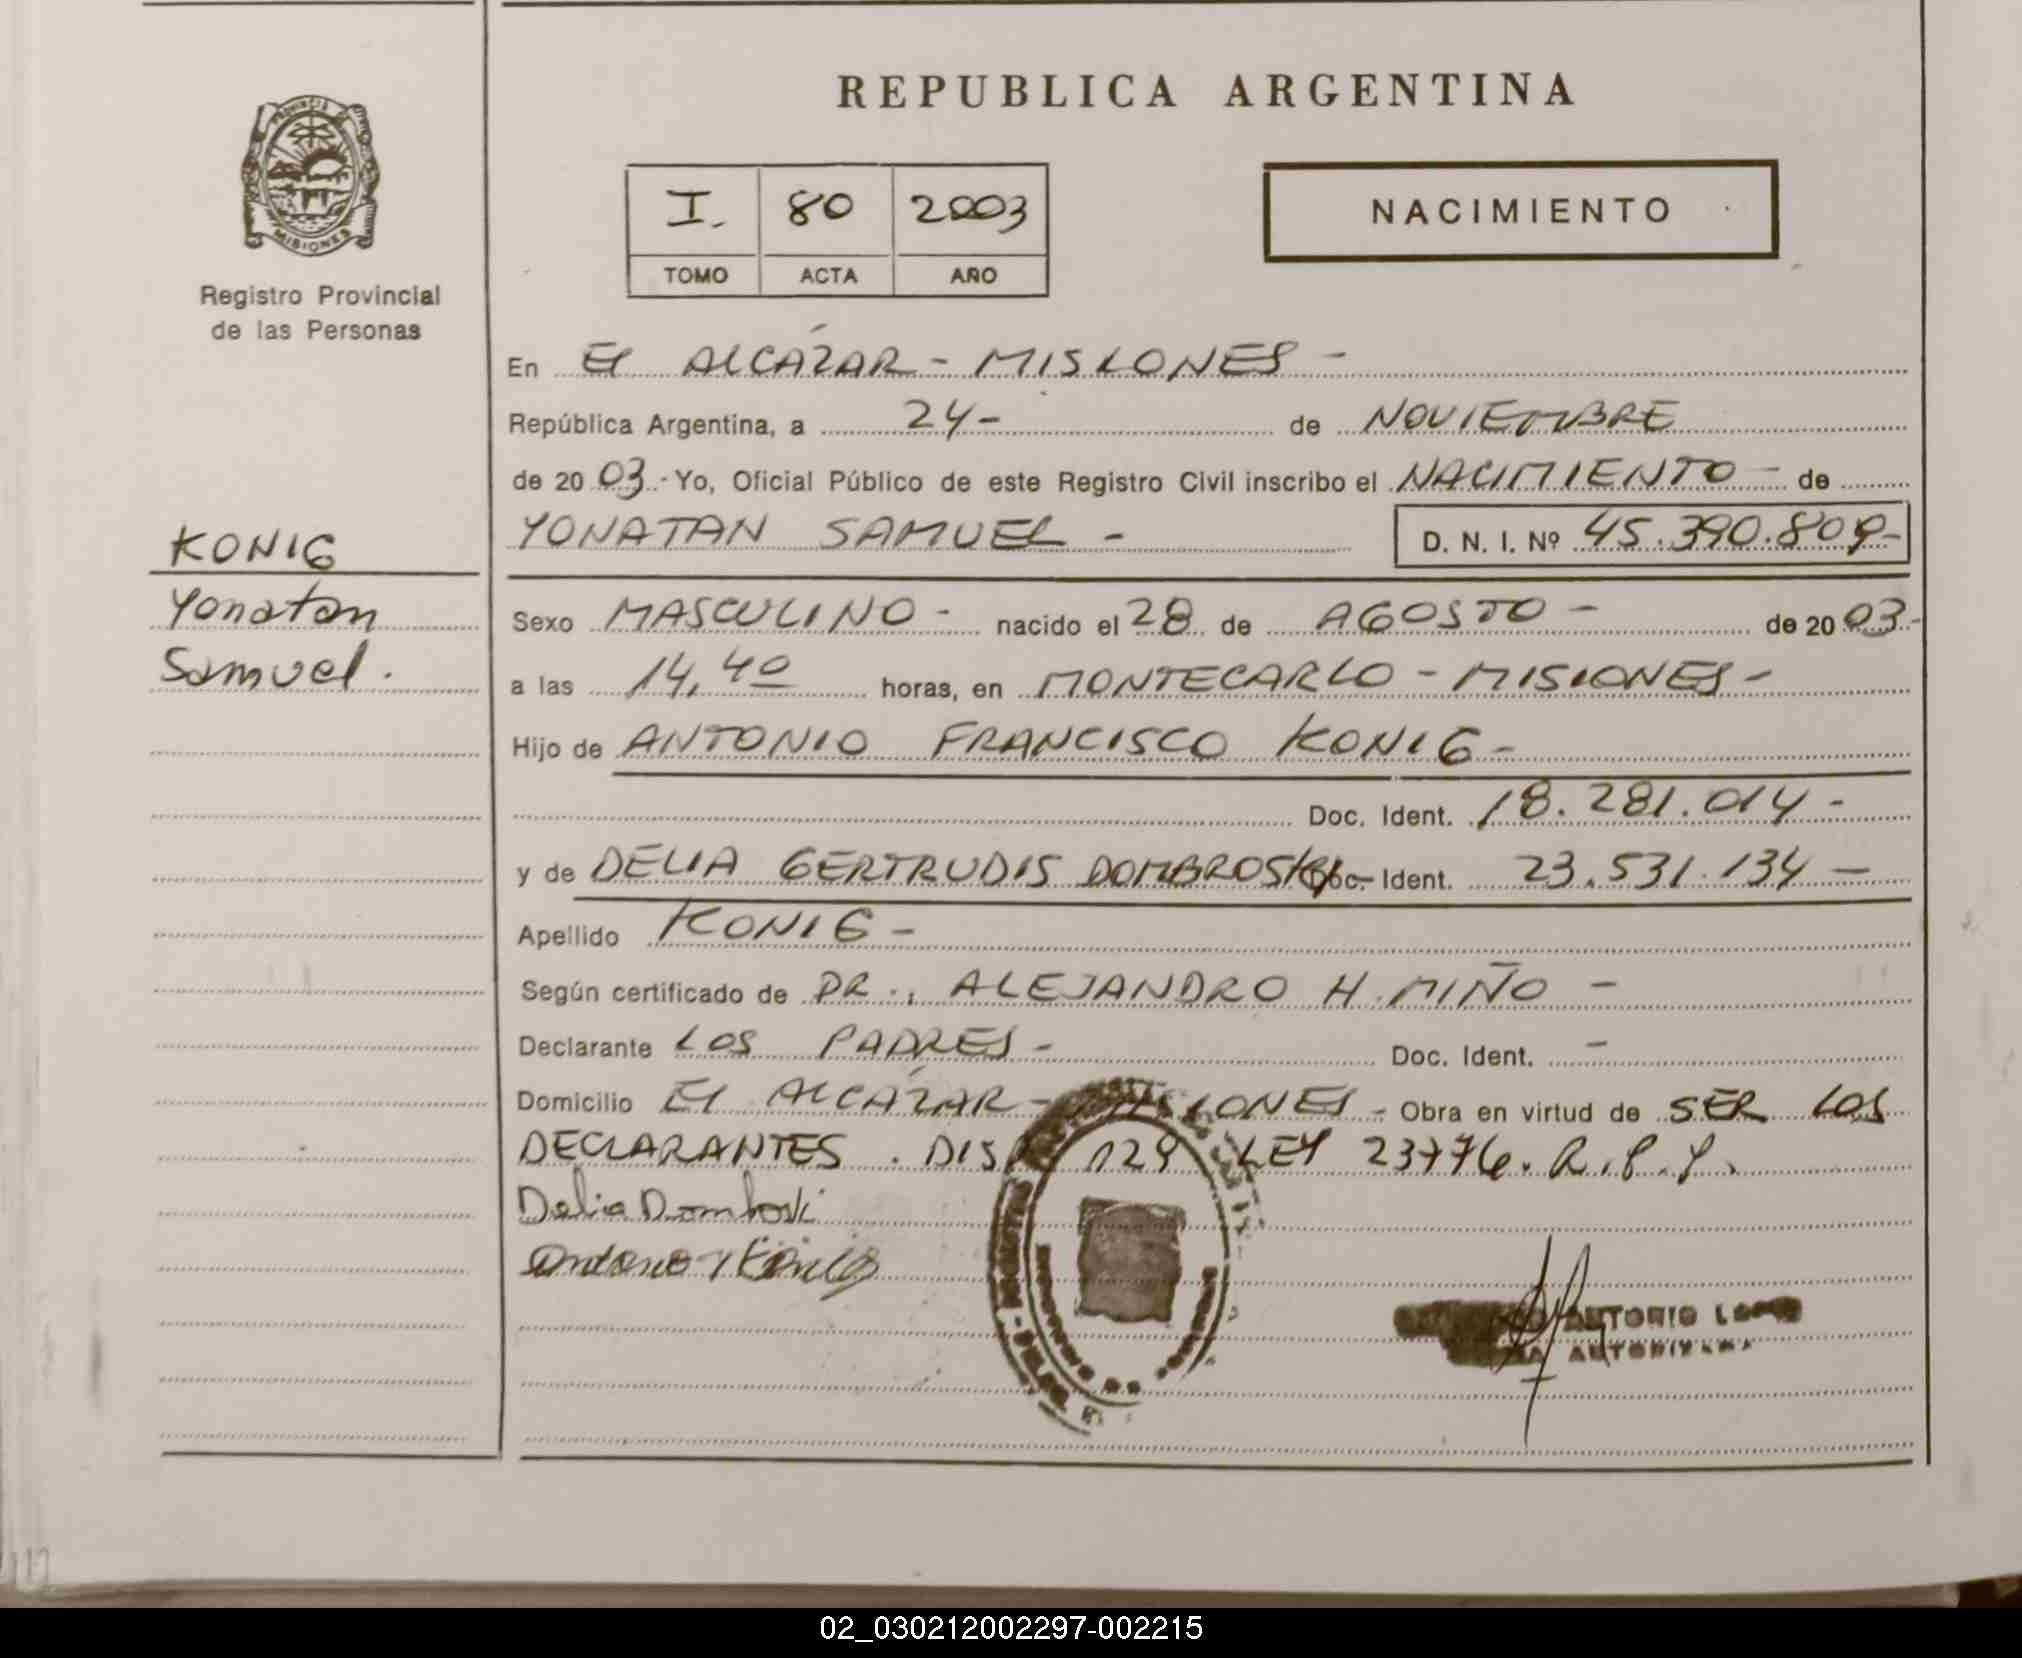 REPUBLICA ARGENTINA
PROVINCIA
MISIONES
Registro Provincial
de las Personas
I. 80 2003
TOMO ACTA AÑO
NACIMIENTO
KONIG
Yonatan
Samuel.
En El ALCÁZAR - MISIONES -
República Argentina, a 24 - de NOVIEMBRE
de 20 03 - Yo, Oficial Público de este Registro Civil inscribo el NACIMIENTO - de
YONATAN SAMUEL - D. N. I. Nº 45.390.809-
Sexo MASCULINO - nacido el 28 de AGOSTO - de 20 03-
a las 14,40 horas, en MONTECARLO - MISIONES -
Hijo de ANTONIO FRANCISCO KONIG -
Doc. Ident. 18.281.014 -
y de DELIA GERTRUDIS DOMBROSKI Doc. Ident. 23.531.134 -
Apellido KONIG -
Según certificado de DR., ALEJANDRO H. MIÑO -
Declarante LOS PADRES - Doc. Ident. -
Domicilio El ALCÁZAR - MISIONES - Obra en virtud de SER LOS
DECLARANTES. DISP. 129 LEY 23776. R.P.P.
Delia Dombroski
Antonio F Konig
ANTONIO
02_030212002297-002215